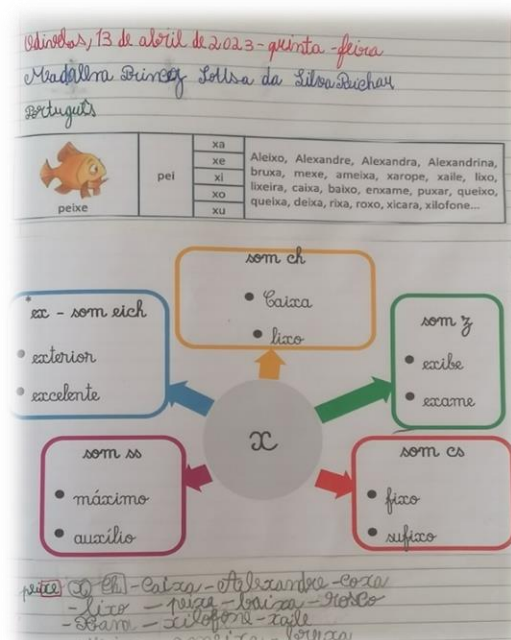 Odivelas, 13 de abril de 2023 - quinta - feira
Madalena da Silva
Português
peixe
pei
xa
xe
xi
xo
xu
Aleixo, Alexandre, Alexandra, Alexandrina,
bruxa, mexe, ameixa, xarope, xaile, lixo,
lixeira, caixa, baixo, enxame, puxar, queixo,
queixa, deixa, rixa, roxo, xicara, xilofone...
som ch
• Caixa
• lixo
ex - som eich
• exterior
• excelente
som z
• exibe
• exame
x
som ss
• máximo
• auxílio
som cs
• fixo
• sufixo
peixe (x) Ch - Caixa - Alexandre - Coxa
- lixo - peixe - baixa - roxo
- xilofone - xaile